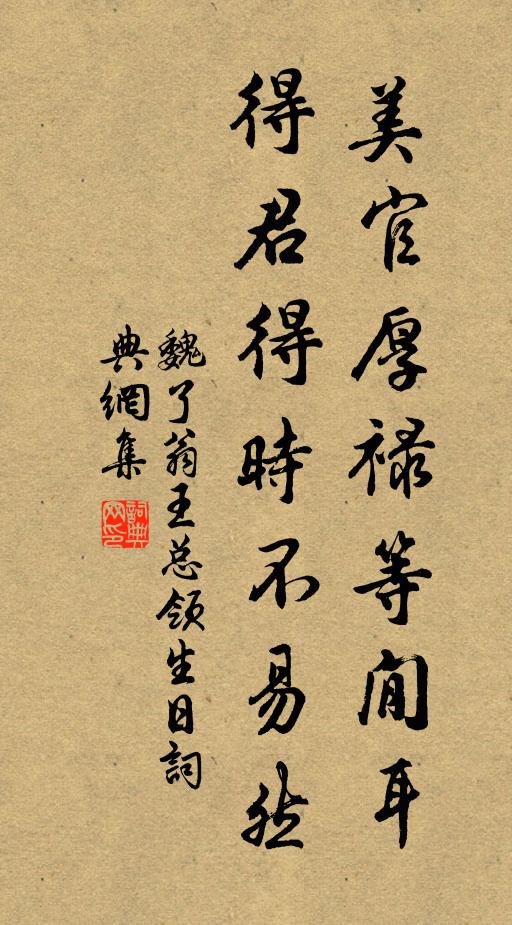 美官厚祿等閒耳
得君得時不易然
魏了翁王总領生日詞
典網集
詞典
网印